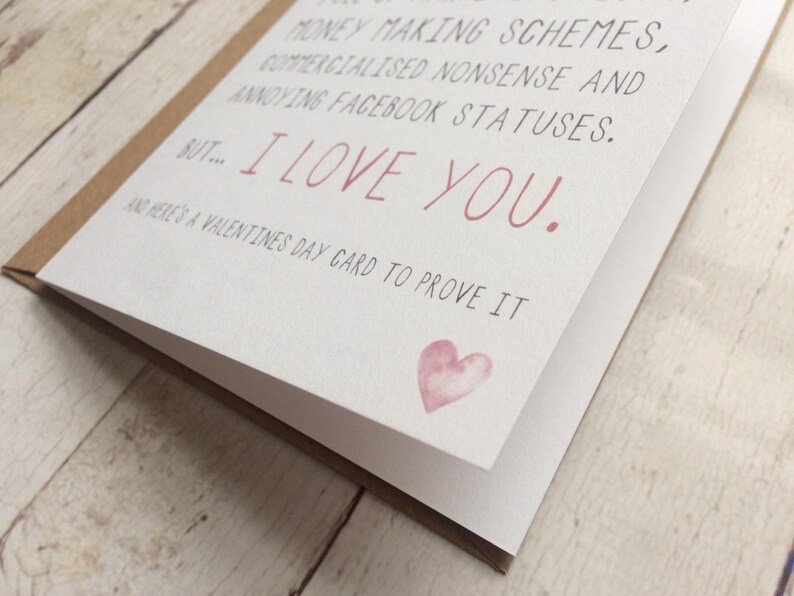 MONEY MAKING SCHEMES,
COMMERCIALISED NONSENSE AND
ANNOYING FACEBOOK STATUSES.
BUT... I LOVE YOU.
AND HERE'S A VALENTINES DAY CARD TO PROVE IT